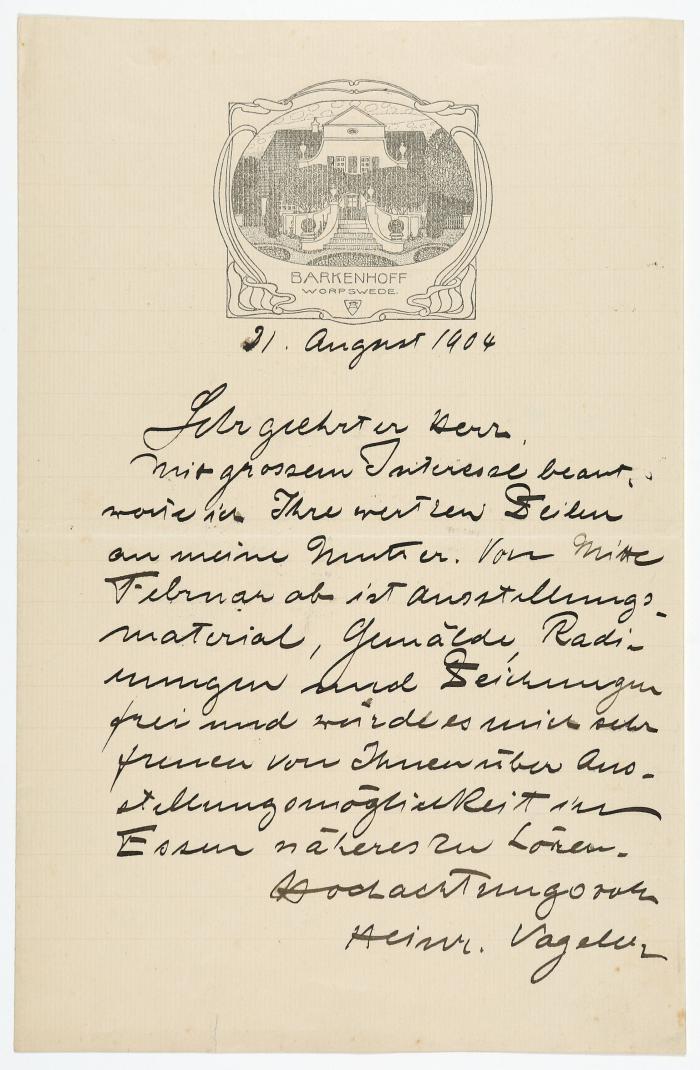 BARKENHOFF
WORPSWEDE.
21. August 1904
Sehr geehrter Herr,
Mit grossem Interesse beant-
worte ich Ihre werthen Zeilen
an meine Mutter. Von Mitte
Februar ab ist Ausstellungs-
material, Gemälde, Radi-
rungen und Zeichnungen
frei und würde es mich sehr
freuen von Ihnen über Aus-
stellungsmöglichkeit in
Essen näheres zu hören.
Hochachtungsvoll
Heinr. Vogeler